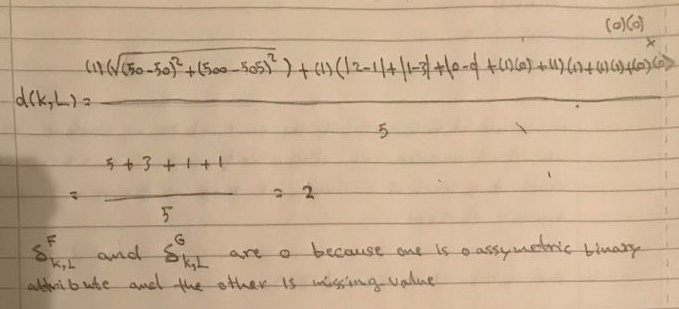 (0)(0)
(1)(√(50-50)² + (500-505)²) + (1)(|2-1| + |1-3| + |0-0| + (1)(0) + (1)(1) + (1)(1) + (0)(0)
d(K,L) =
5
= 5 + 3 + 1 + 1 / 5 = 2
δ^F_{K,L} and δ^G_{K,L} are 0 because one is assymetric binary
attribute and the other is missing value